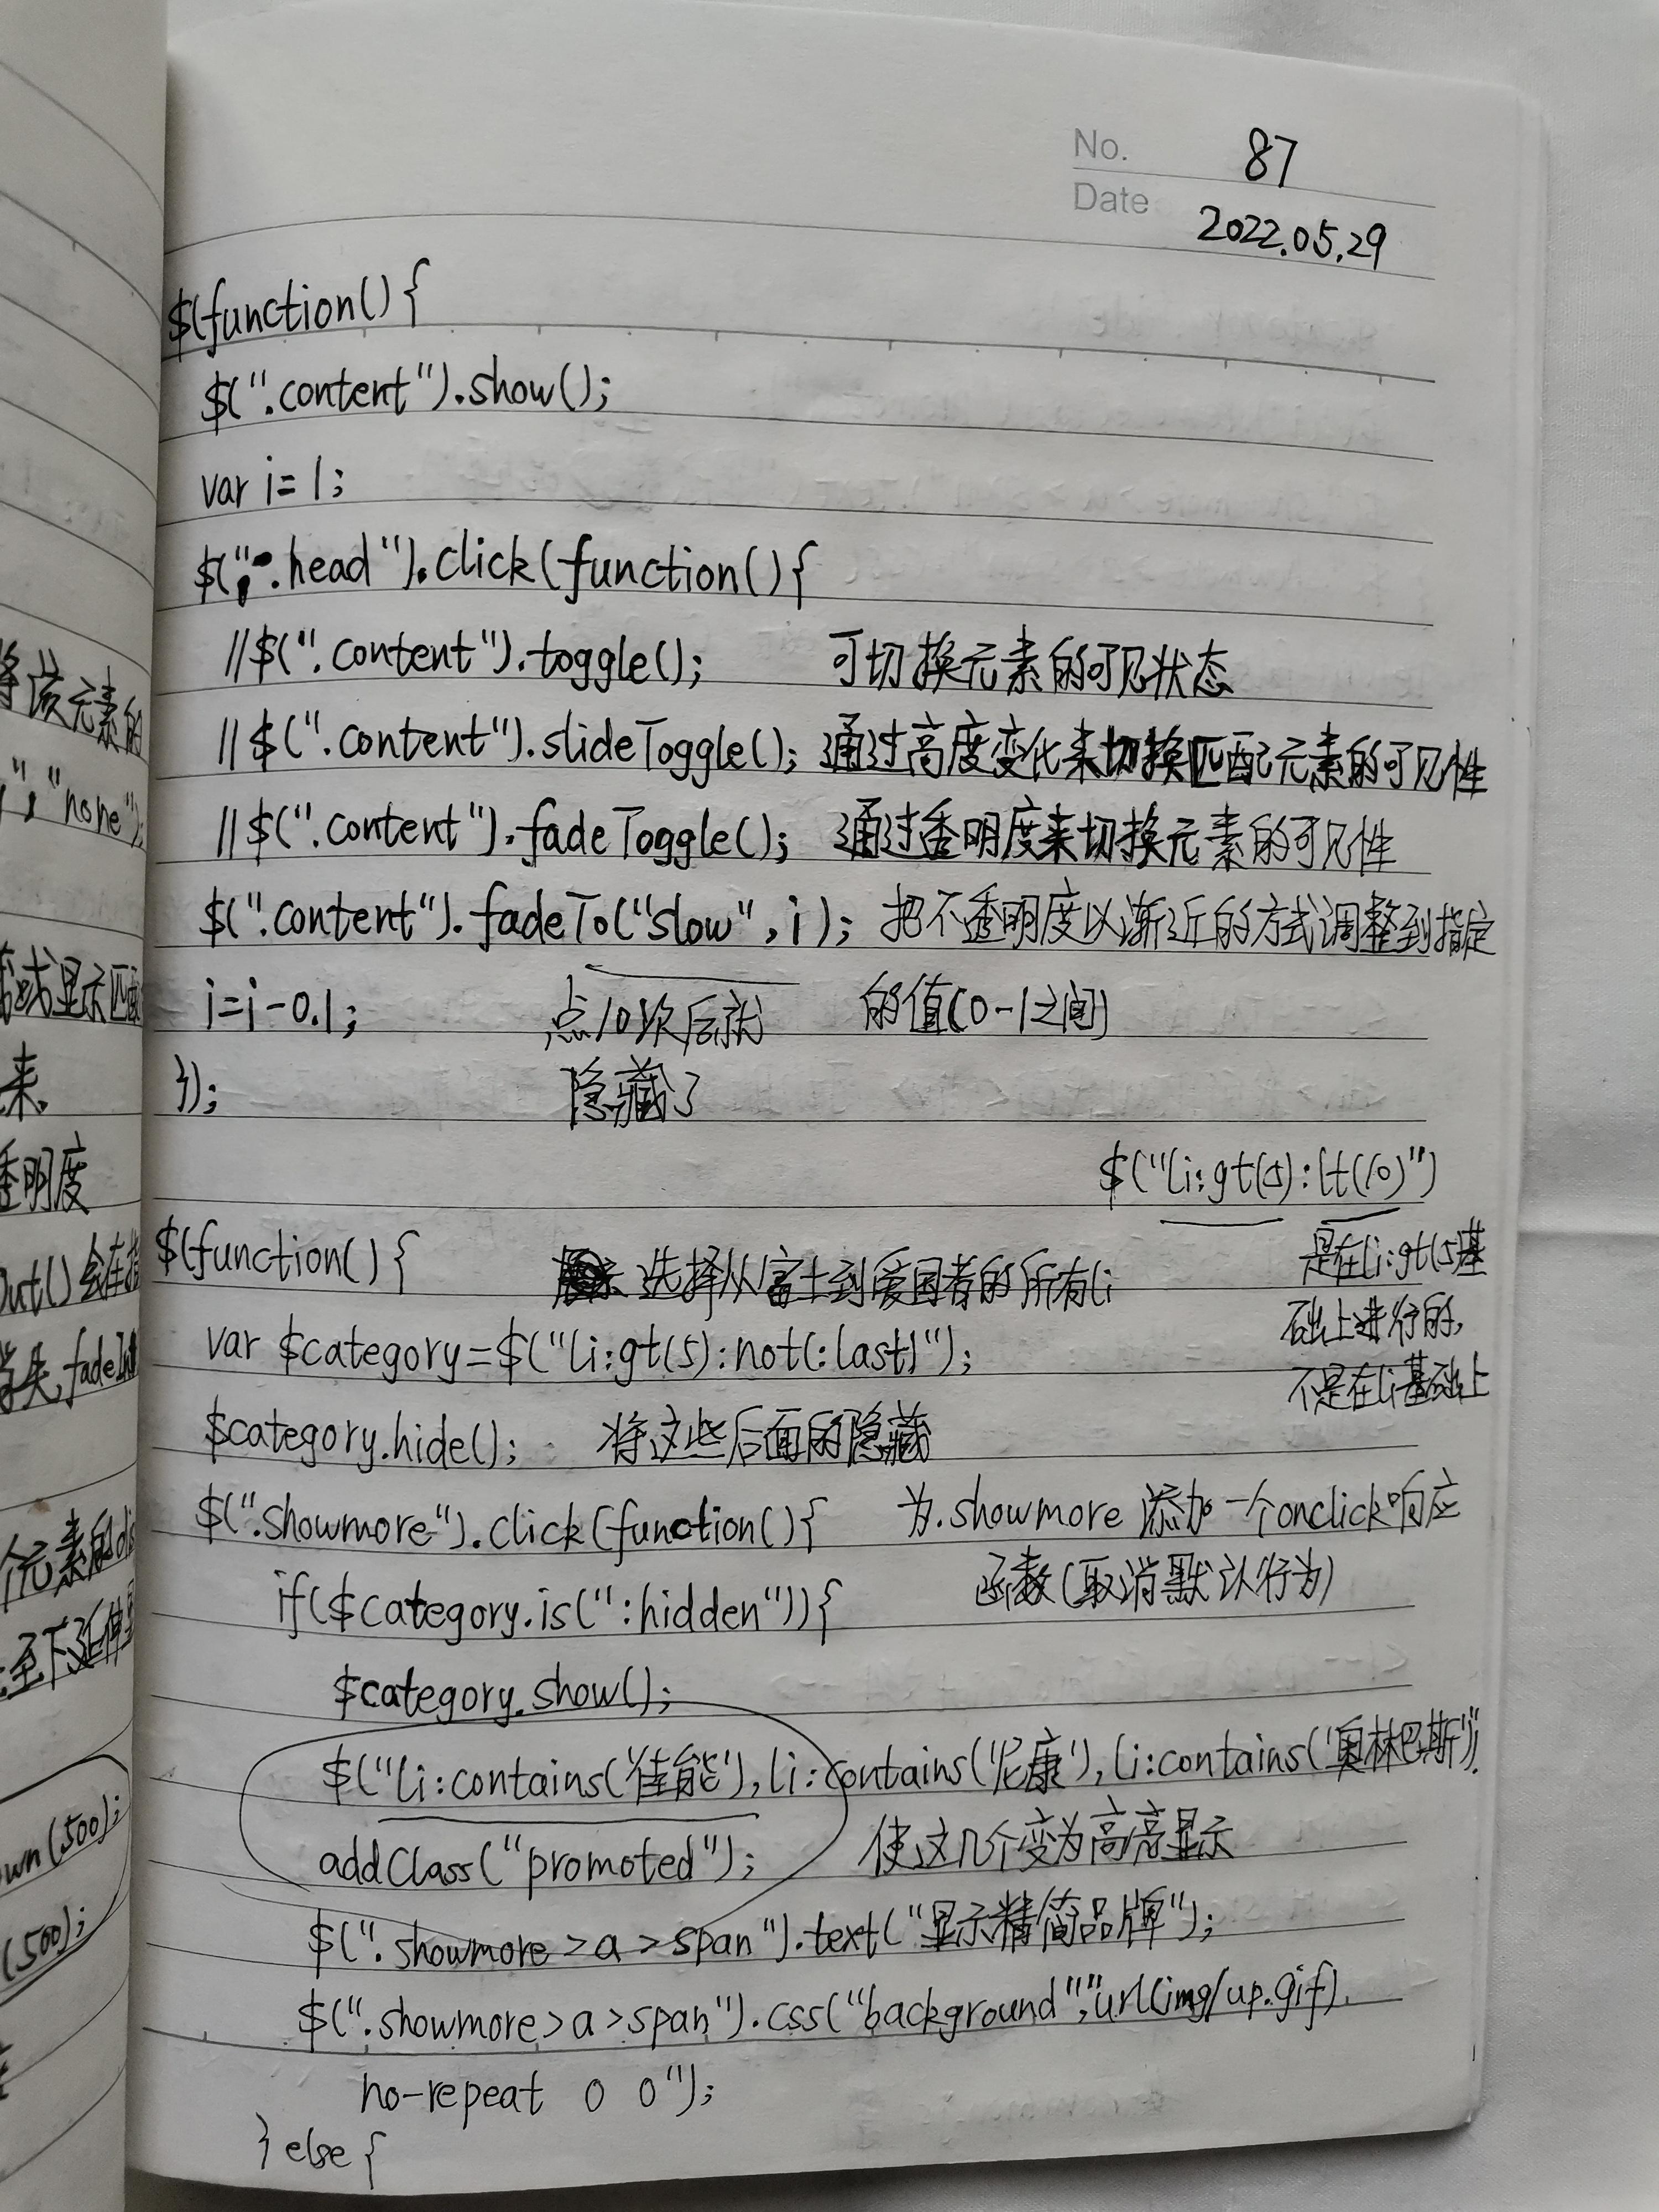 No. 87
Date 2022.05.29
$(function(){
$(".content").show();
var i=1;
$(".head").click(function(){
//$(".content").toggle(); 可切换元素的可见状态
//$(".content").slideToggle(); 通过高度变化来切换匹配元素的可见性
//$(".content").fadeToggle(); 通过透明度来切换元素的可见性
$(".content").fadeTo("slow",i); 把不透明度以渐近的方式调整到指定
i=i-0.1; 点10次后就 的值(0-1之间)
}); 隐藏了
$("li:gt(5):lt(10)")
$(function(){ 选择从富士到爱国者的所有li 是在li:gt(5)基
础上进行的,
var $category=$("li:gt(5):not(:last)");
不是在li基础上
$category.hide(); 将这些后面的隐藏
$(".showmore").click(function(){ 为.showmore 添加一个onclick响应
if($category.is(":hidden")){ 函数(取消默认行为)
$category.show();
$("li:contains('佳能'),li:contains('尼康'),li:contains('奥林巴斯')").
addClass("promoted"); 使这几个变为高亮显示
$(".showmore>a>span").text("显示精简品牌");
$(".showmore>a>span").css("background","url(img/up.gif)
no-repeat 0 0");
}else{
将该元素的
","none");
或显示匹配
来.
透明度
Out()会在指
消失,fadeIn
个元素的dis
至下延伸
wn(500);
(500);